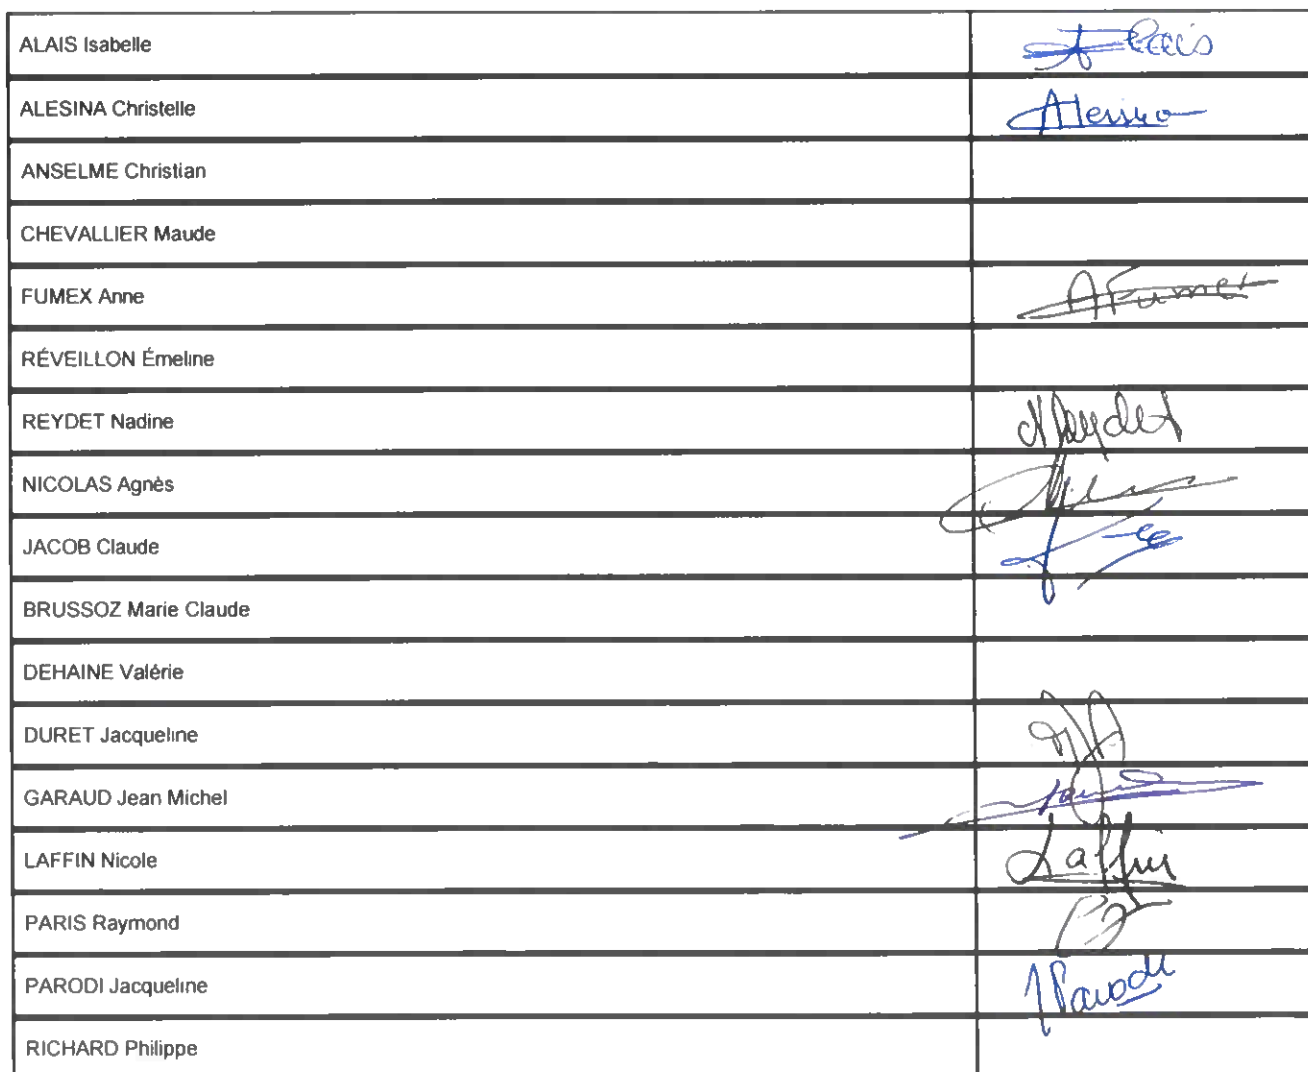 ALAIS Isabelle Alais
ALESINA Christelle Alesina
ANSELME Christian
CHEVALLIER Maude
FUMEX Anne AFumex
RÉVEILLON Émeline
REYDET Nadine NReydet
NICOLAS Agnès
JACOB Claude
BRUSSOZ Marie Claude
DEHAINE Valérie
DURET Jacqueline
GARAUD Jean Michel
LAFFIN Nicole Laffin
PARIS Raymond
PARODI Jacqueline JParodi
RICHARD Philippe